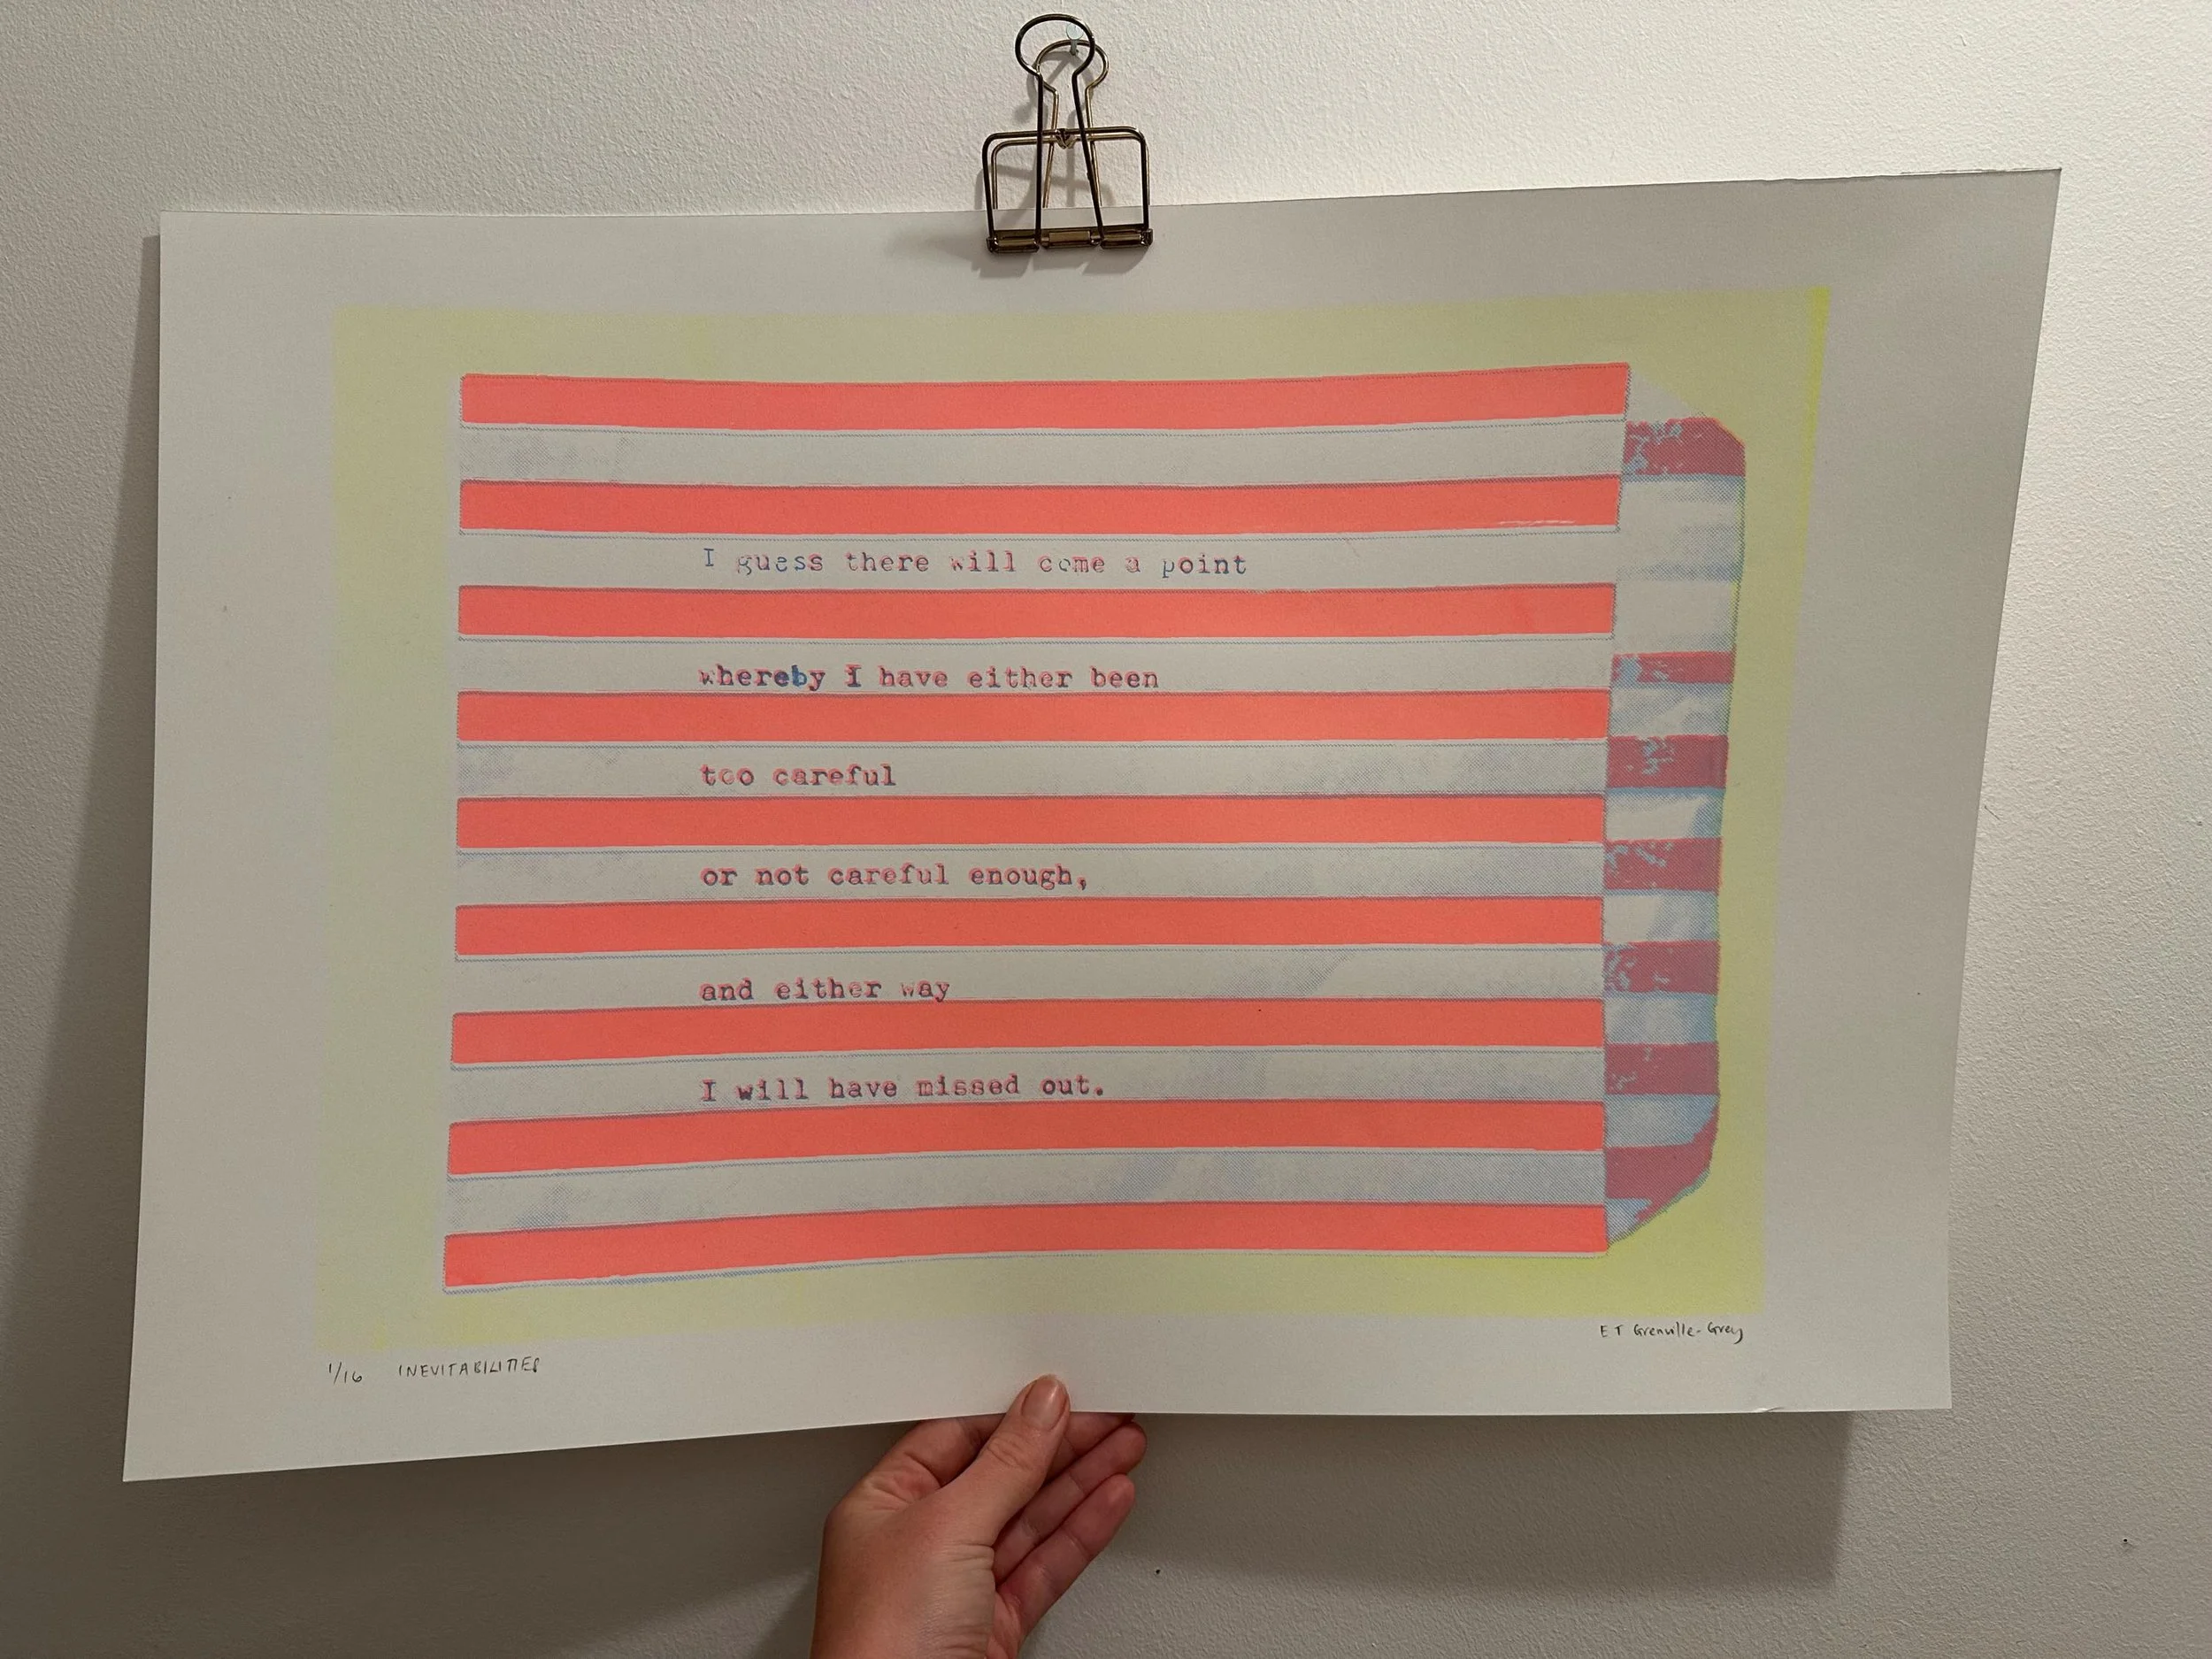 I guess there will come a point
whereby I have either been
too careful
or not careful enough,
and either way
I will have missed out.
1/16 INEVITABILITIES
E T Grenville-Grey